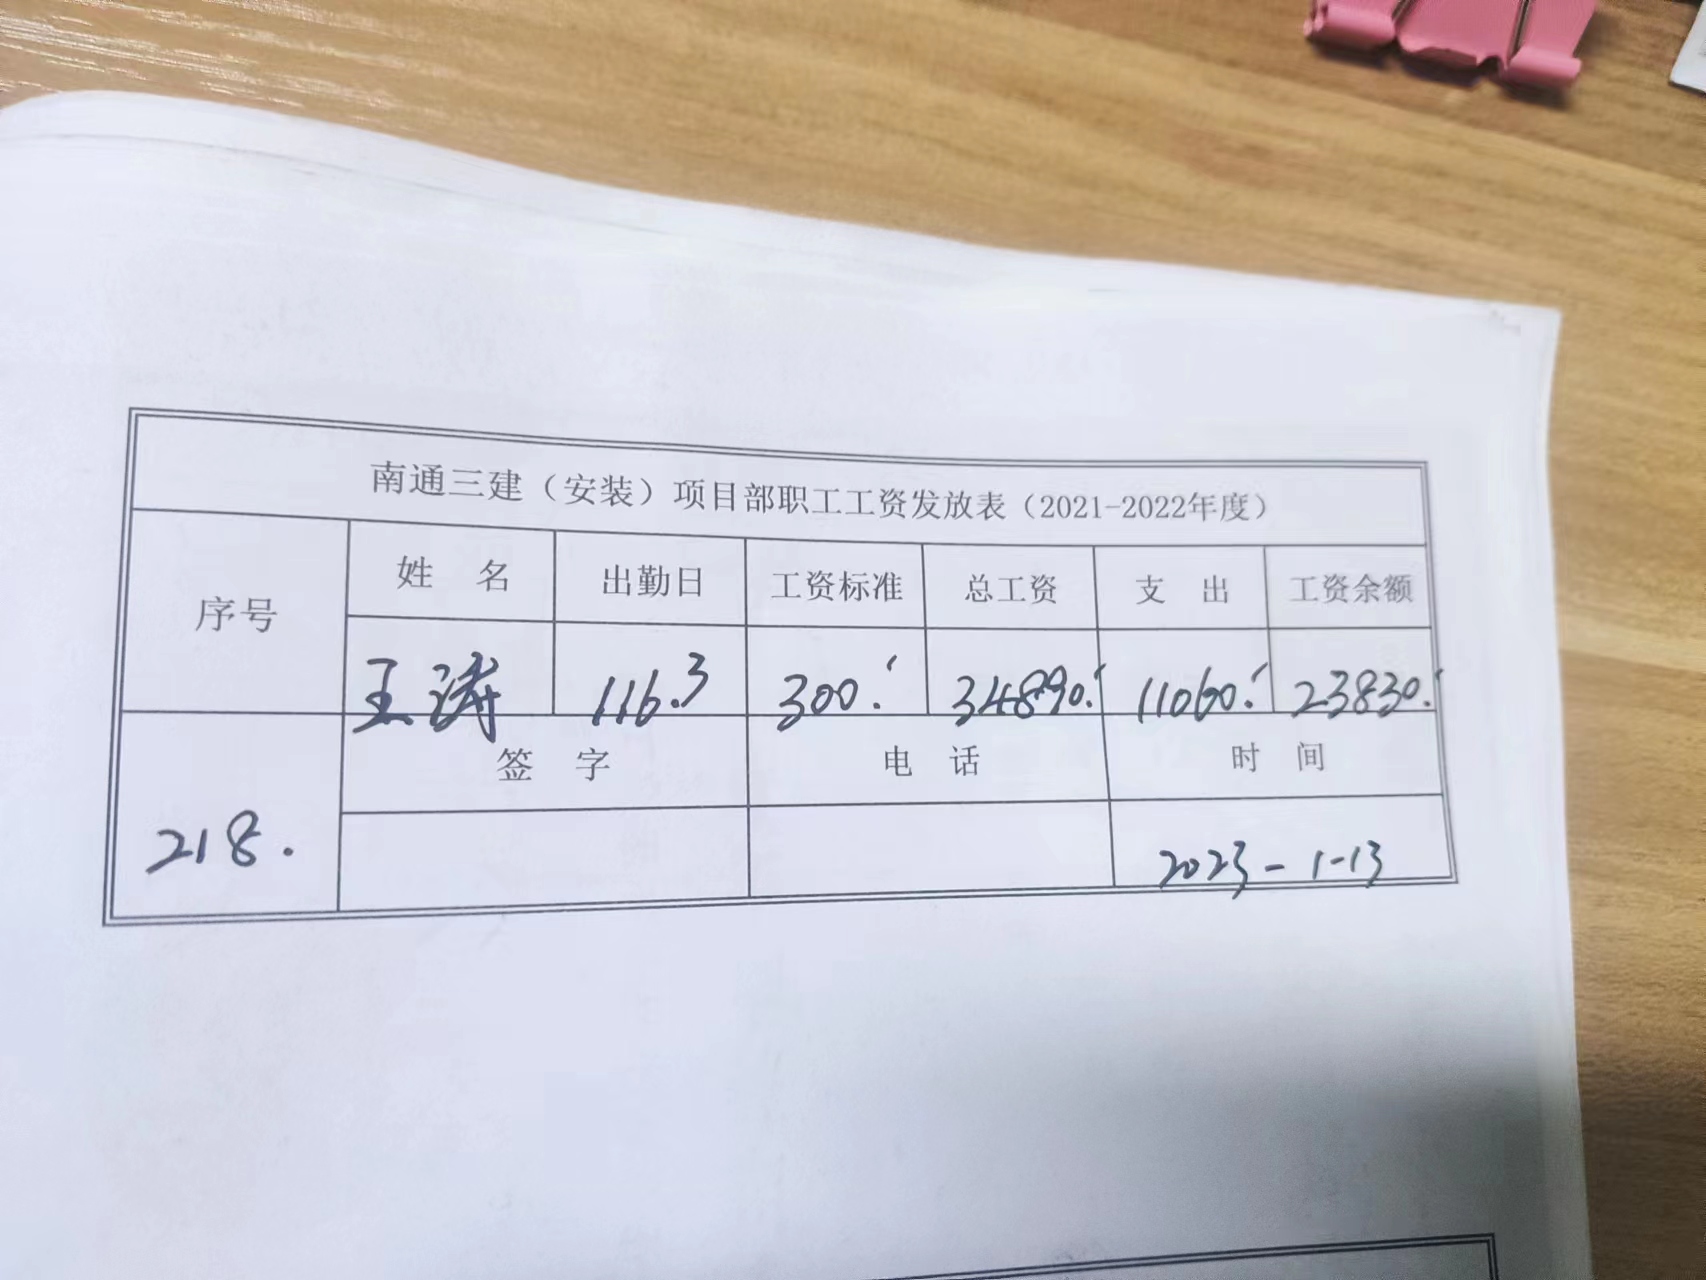 南通三建（安装）项目部职工工资发放表（2021-2022年度）
序号 姓 名 出勤日 工资标准 总工资 支 出 工资余额
王涛 116.3 300. 34890. 11060. 23830.
签 字 电 话 时 间
218. 2023-1-13